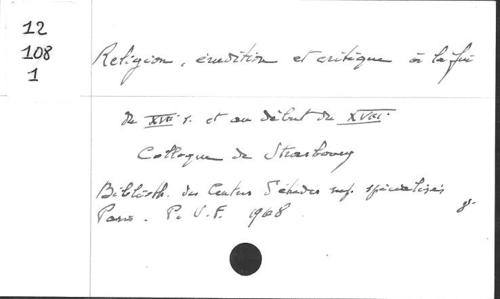 12
108
1
Religion, érudition et critique à la fin
du XVIIe s. et au début du XVIIIe.
Colloque de Strasbourg
Biblioth. des Centres d'études sup. spécialisés
Paris. P.U.F. 1968
8°